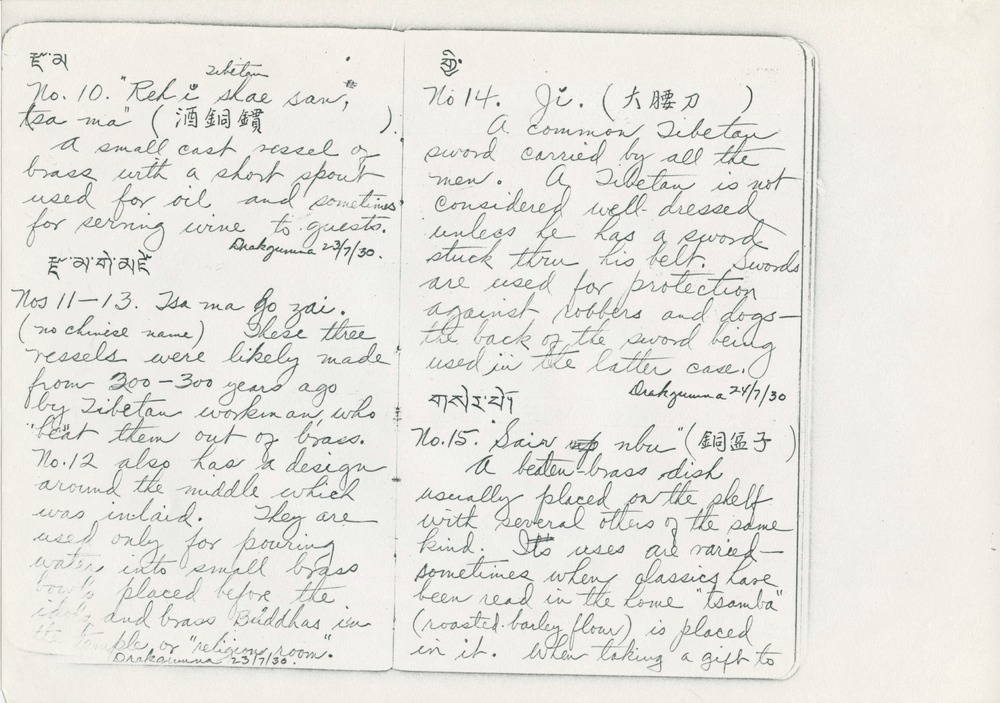 Tibetan
No. 10. "Reh i shae san,
tsa ma" (酒銅鑵 ).
A small cast vessel of
brass with a short spout
used for oil and sometimes
for serving wine to guests.
Drakgumna 23/7/30.
རྫ་མ་གོ་མཛེ
Nos 11-13. Tsa ma go zai.
(no chinese name) These three
vessels were likely made
from 200-300 years ago
by Tibetan workman, who
"beat them out of brass.
No.12 also has a design
around the middle which
was inlaid. They are
used only for pouring
water into small brass
bowls placed before the
idols and brass Buddhas in
the temple or "religious room".
Drakgumna 23/7/30.
No 14. Ji. (大腰刀 )
A common Tibetan
sword carried by all the
men. A Tibetan is not
considered well-dressed
unless he has a sword
stuck thru his belt. Swords
are used for protection
against robbers and dogs-
the back of the sword being
used in the latter case.
Drakgumna 24/7/30
No.15. "Sair nbu" (銅盃子 )
A beaten-brass dish
usually placed on the shelf
with several others of the same
kind. Its uses are varied-
sometimes when classics have
been read in the home "tsamba"
(roasted-barley flour) is placed
in it. When taking a gift to